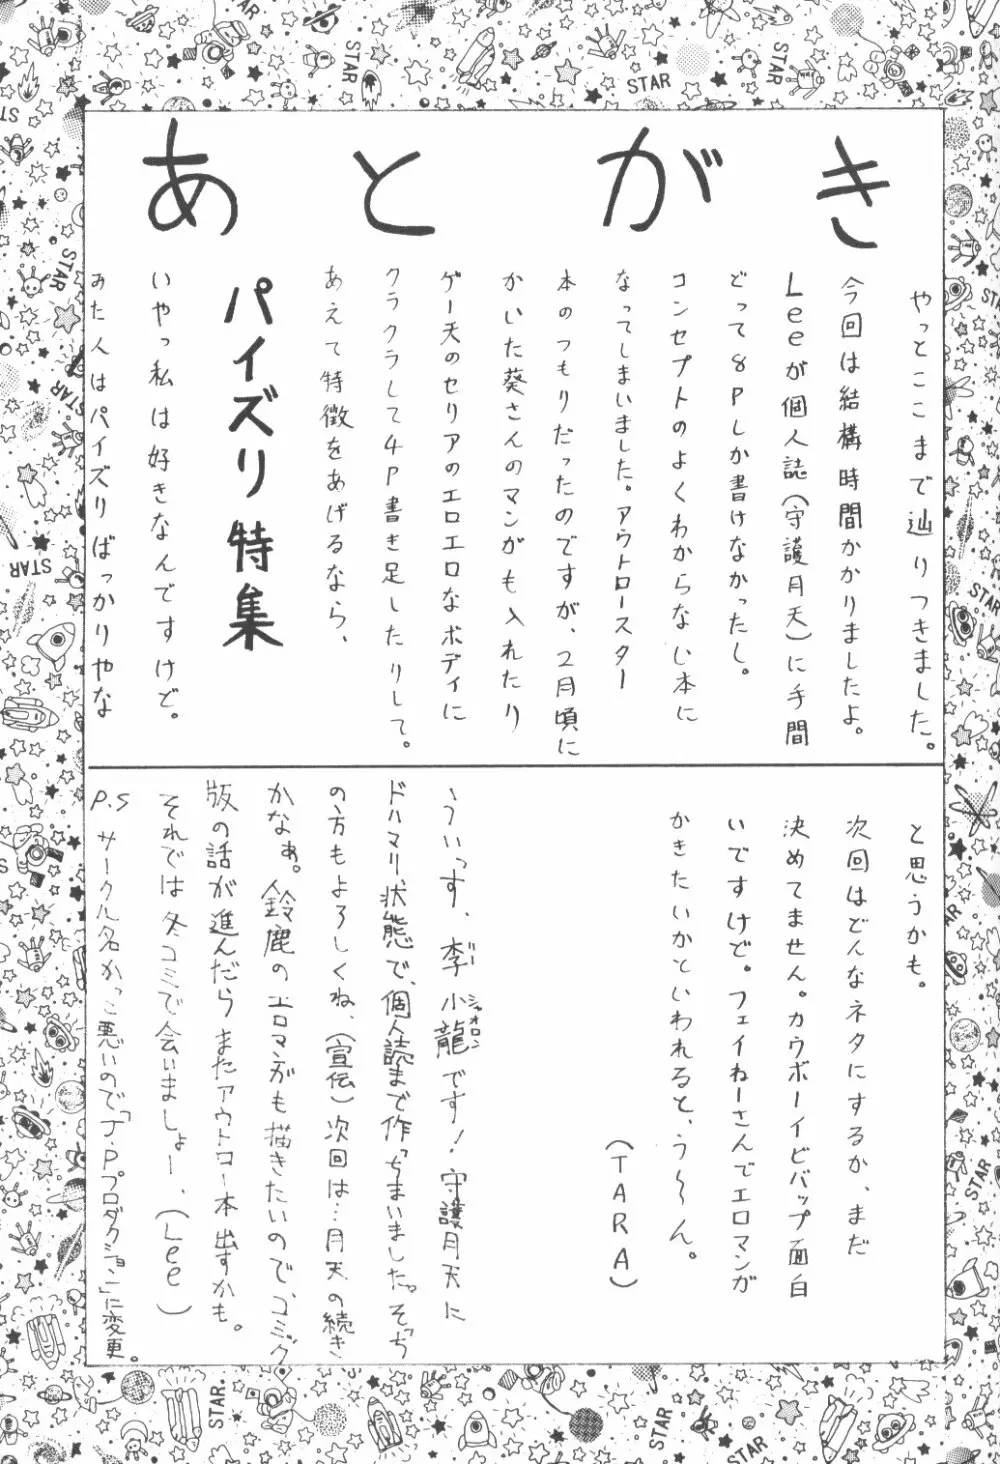 あとがき
やっとここまで辿りつきました。
今回は結構時間かかりましたよ。
Leeが個人誌(守護月天)に手間
どって8Pしか書けなかったし。
コンセプトのよくわからない本に
なってしまいました。アウトロースター
本のつもりだったのですが、2月頃に
かいた葵さんのマンガも入れたり
ゲー天のセリアのエロエロなボディに
クラクラして4P書き足したりして。
あえて特徴をあげるなら、
パイズリ特集
いやっ私は好きなんですけど。
みた人はパイズリばっかりやな
と思うかも。
次回はどんなネタにするか、まだ
決めてません。カウボーイビバップ面白
いですけど。フェイねーさんでエロマンガ
かきたいかといわれると、う〜ん。
(TARA)
ういっす、李小龍です!守護月天に
リー
シャオロン
ドハマリ状態で、個人読まで作っちまいました。そっち
の方もよろしくね、(宣伝)次回は…月天の続き
かなぁ。鈴鹿のエロマンガも描きたいので、コミック
版の話が進んだらまたアウトロー本出すかも。
それでは冬コミで会いましょー、(Lee)
P.S サークル名かっこ悪いので「J.Pプロダクション」に変更。
STAR
STAR
STAR
STAR
STAR
STAR
STAR
STAR
STAR
STAR
STAR
STAR
STAR